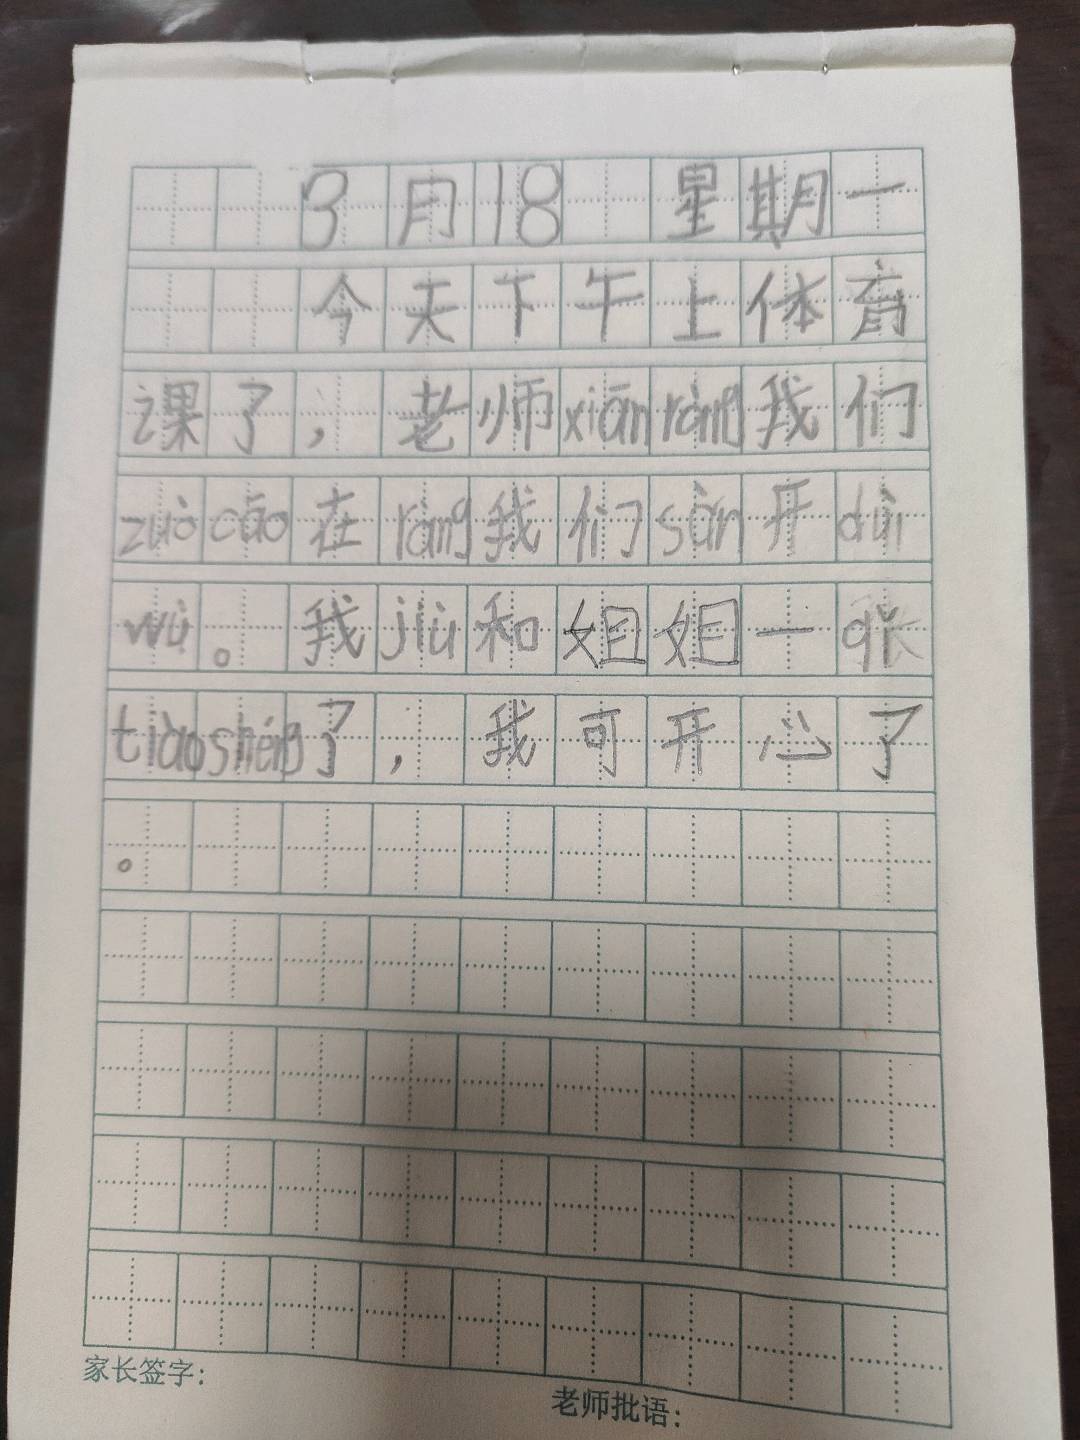 3月18 星期一
今天下午上体育
课了，老师xiānràng我们
zuòcāo在ràng我们sàn开duì
wù。我jiù和姐姐一
tiàoshéng了，我可开心了
。
家长签字：
老师批语：